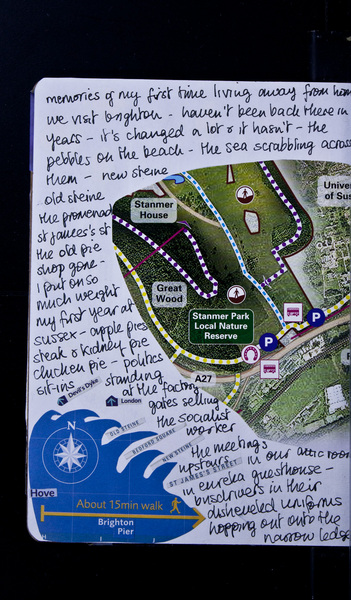 memories of my first time living away from hom
we visit brighton - haven't been back there in
years - it's changed a lot & it hasn't - the
pebbles on the beach - the sea scrabbling across
them - new steine
old steine
the promenad
st james's st
the old pie
shop gone -
I put on so
much weight
my first year at
sussex - apple pies
steak & kidney pie
chicken pie - politics
sit-ins standing
at the factory
gates selling
the socialist
worker
the meetings
upstairs in our attic room
in eureka guesthouse -
busdrivers in their
disheveled uniforms
hopping out onto the
narrow ledge
Stanmer
House
Univer
of Sus
Great
Wood
Stanmer Park
Local Nature
Reserve
P
P
A27
Devil's Dyke
London
N
OLD STEINE
BEDFORD SQUARE
NEW STEINE
ST JAMES'S STREET
Hove
About 15min walk
Brighton
Pier